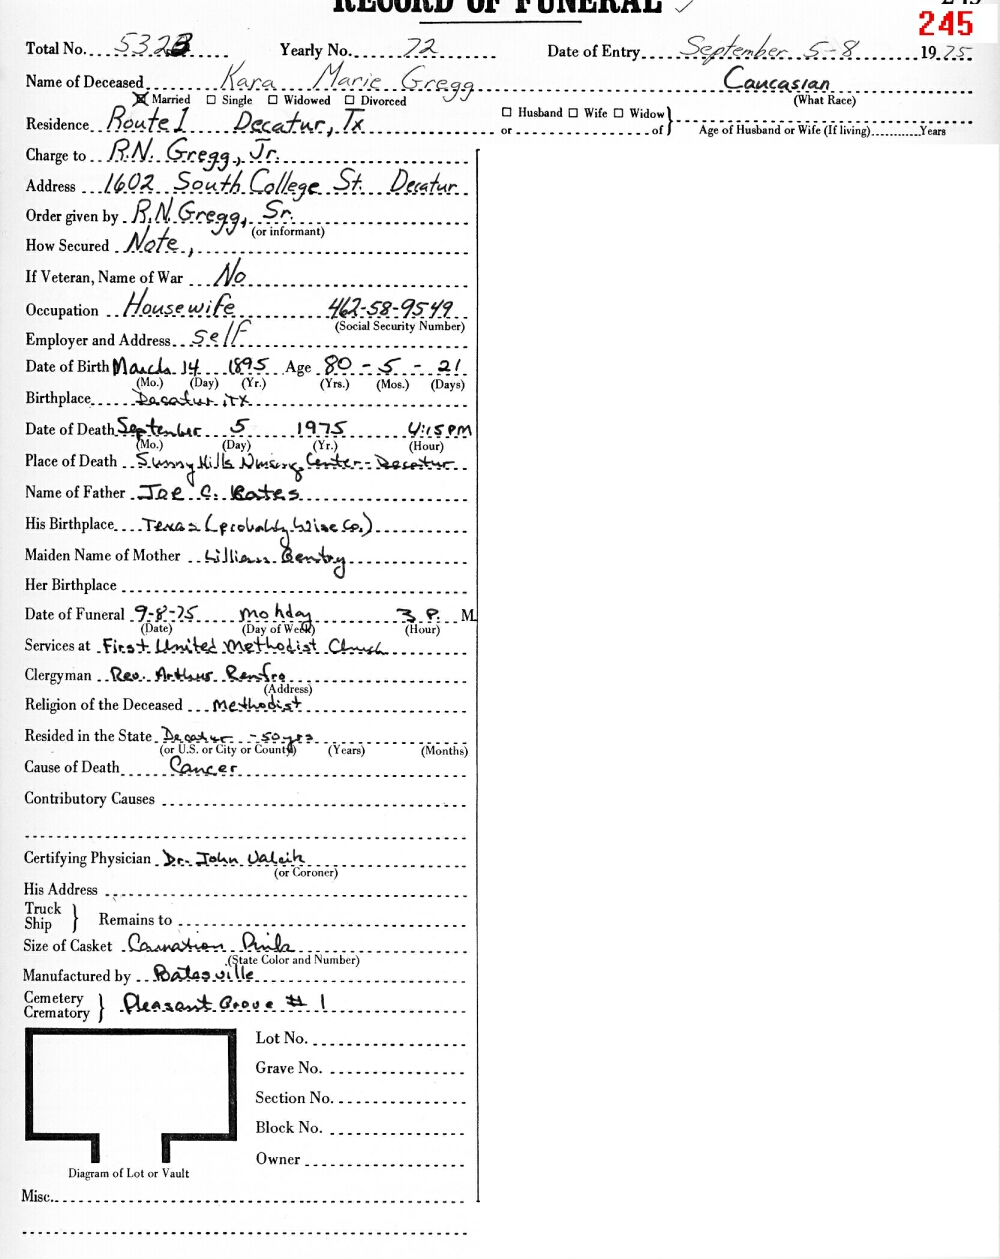 RECORD OF FUNERAL ✓
245
Total No. 5323 Yearly No. 72 Date of Entry September 5-8 1975
Name of Deceased Kara Marie Gregg Caucasian
(What Race)
☒ Married ☐ Single ☐ Widowed ☐ Divorced
☐ Husband ☐ Wife ☐ Widow
Residence Route 1 Decatur, Tx or of Age of Husband or Wife (If living) Years
Charge to R.N. Gregg, Jr.
Address 1602 South College St. Decatur
Order given by R.N. Gregg, Sr.
(or informant)
How Secured Note,
If Veteran, Name of War No
Occupation Housewife 462-58-9549
(Social Security Number)
Employer and Address self
Date of Birth March 14 1895 Age 80 - 5 - 21
(Mo.) (Day) (Yr.) (Yrs.) (Mos.) (Days)
Birthplace Decatur, TX
Date of Death September 5 1975 4:15 PM
(Mo.) (Day) (Yr.) (Hour)
Place of Death Sunny Hills Nursing Center - Decatur
Name of Father Joe C. Bates
His Birthplace Texas (probably Wise Co.)
Maiden Name of Mother Lillian Gentry
Her Birthplace
Date of Funeral 9-8-75 Monday 3 P. M.
(Date) (Day of Week) (Hour)
Services at First United Methodist Church
Clergyman Rev. Arthur Renfro
(Address)
Religion of the Deceased Methodist
Resided in the State Decatur - 50 yrs
(or U.S. or City or County) (Years) (Months)
Cause of Death Cancer
Contributory Causes
Certifying Physician Dr. John
(or Coroner)
His Address
Truck
Ship } Remains to
Size of Casket Carnation Pink
(State Color and Number)
Manufactured by Batesville
Cemetery
Crematory } Pleasant Grove # 1
Lot No.
Grave No.
Section No.
Block No.
Owner
Diagram of Lot or Vault
Misc.